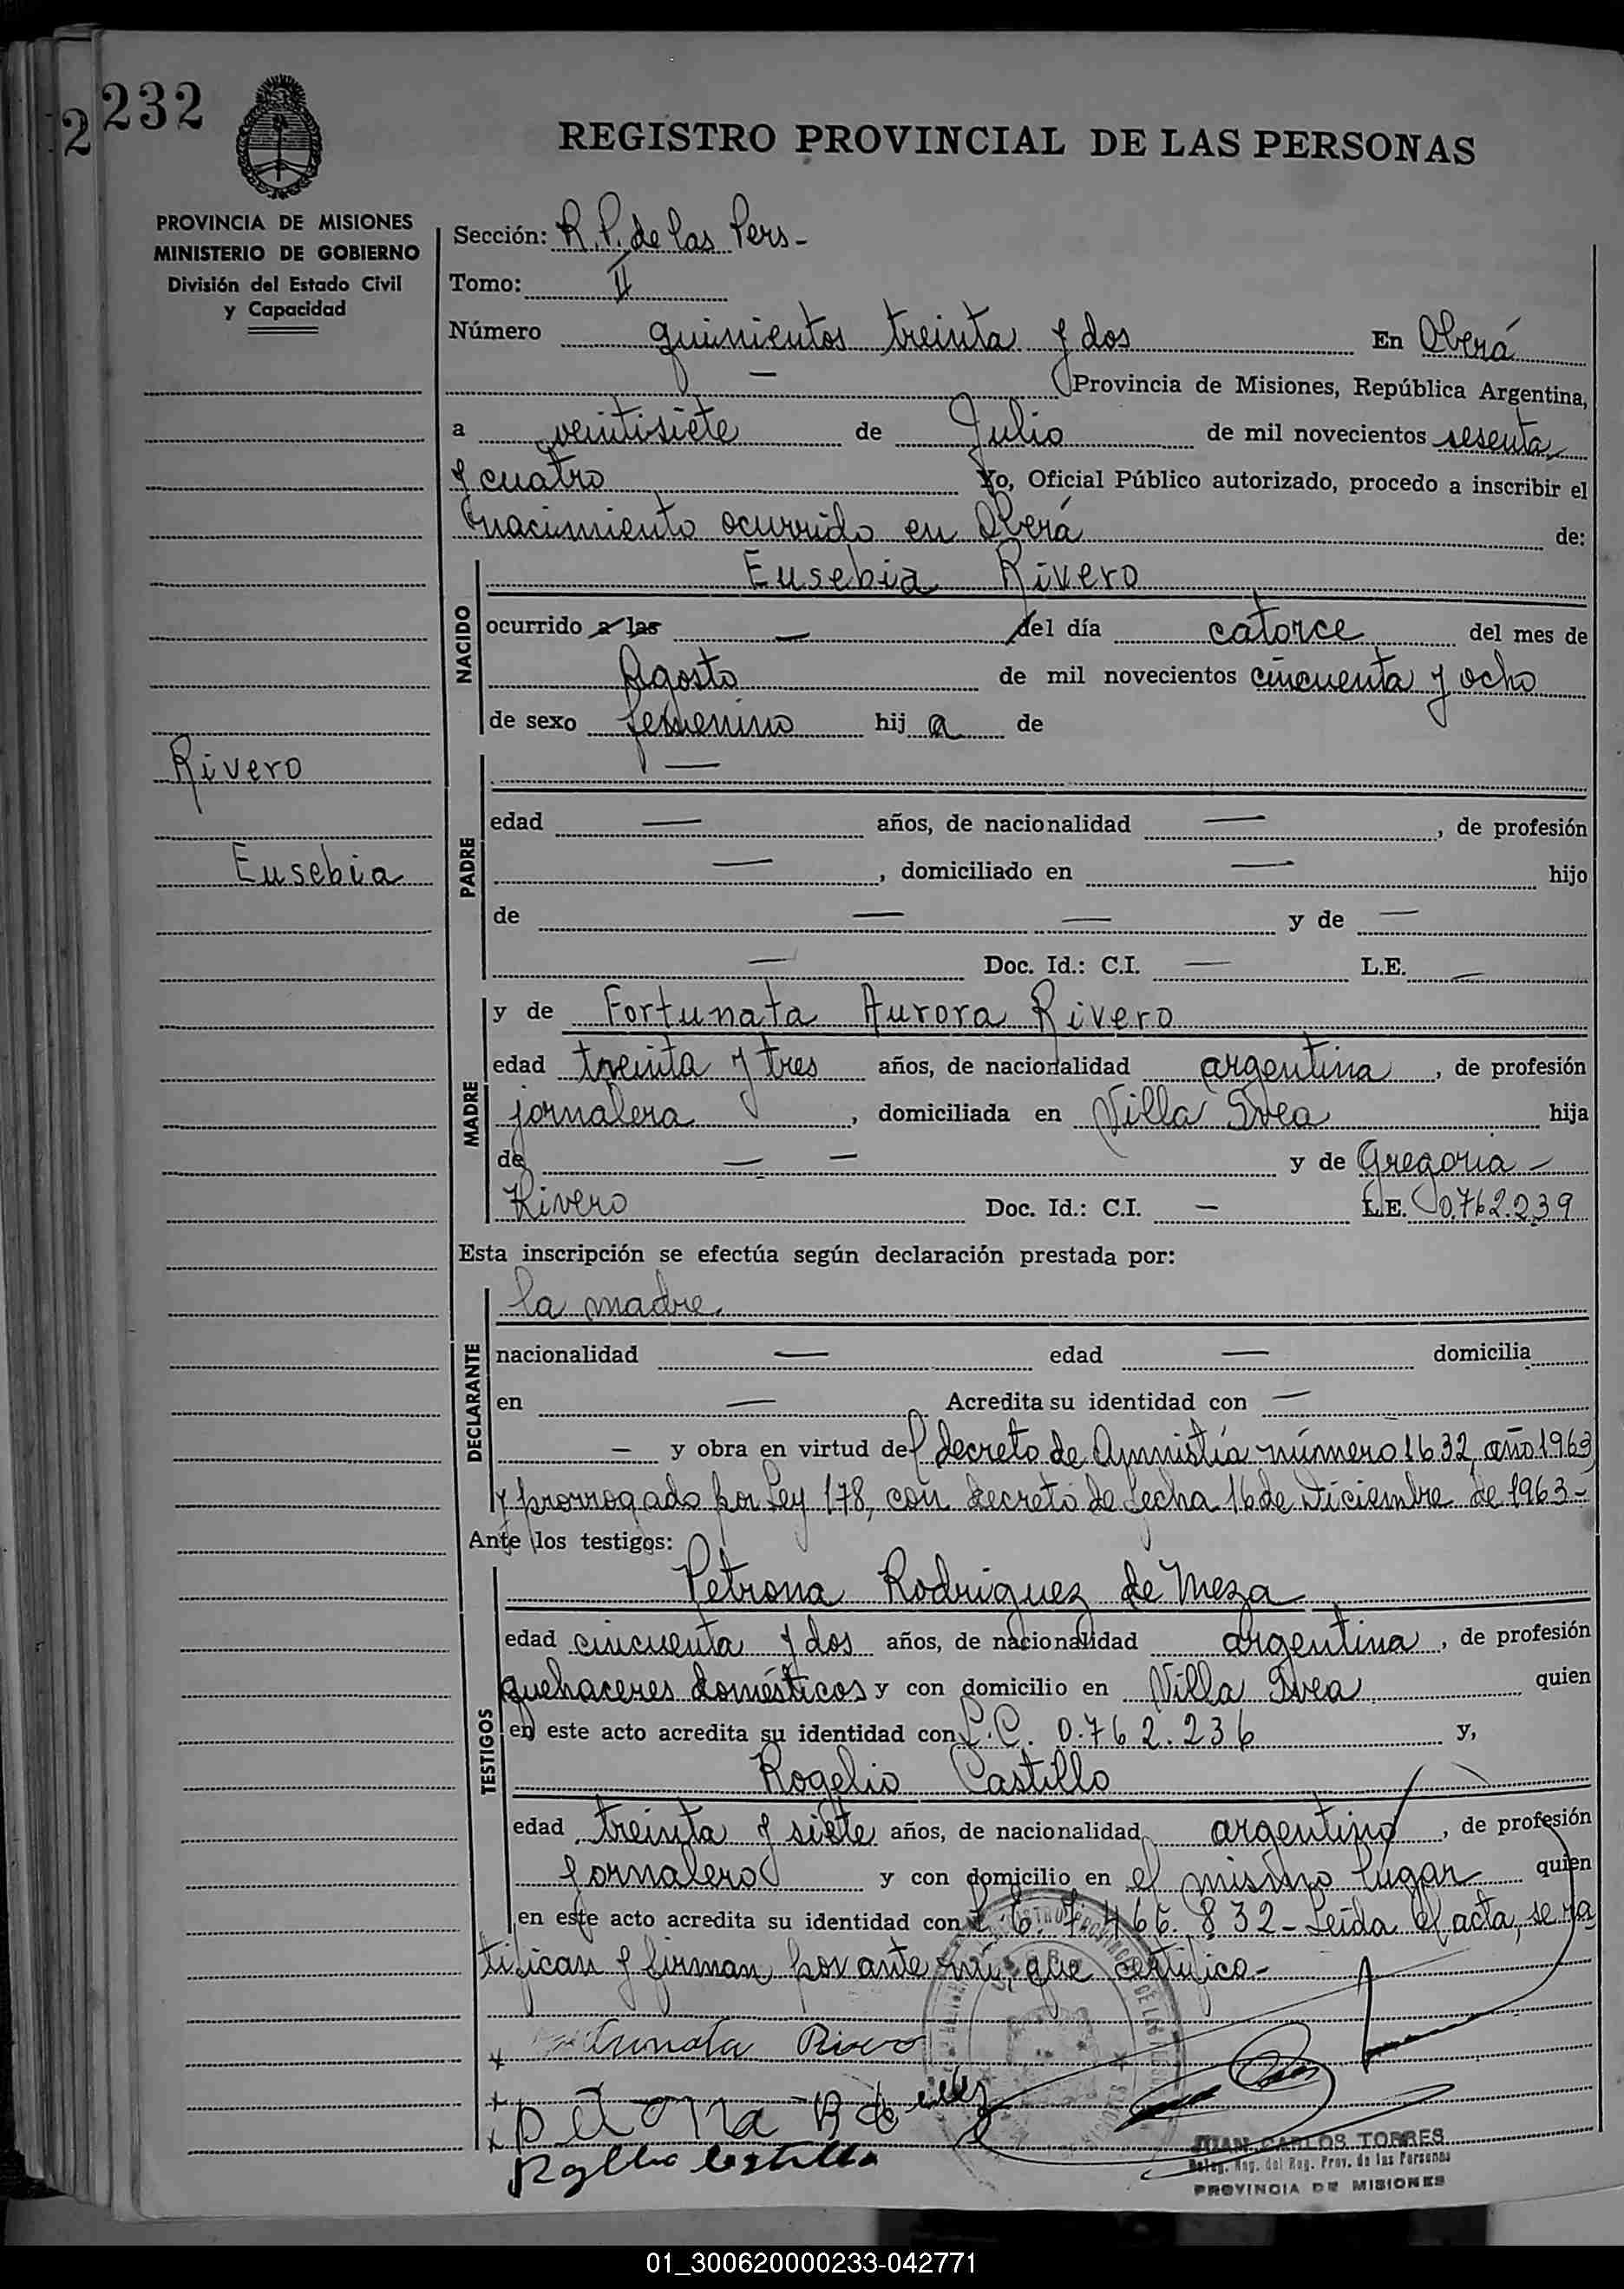 2 232
REGISTRO PROVINCIAL DE LAS PERSONAS
PROVINCIA DE MISIONES
MINISTERIO DE GOBIERNO
División del Estado Civil
y Capacidad
Rivero
Eusebia
Sección: R.P. de las Pers-
Tomo: II
Número quinientos treinta y dos En Oberá
— Provincia de Misiones, República Argentina,
a veintisiete de Julio de mil novecientos sesenta
y cuatro Yo, Oficial Público autorizado, procedo a inscribir el
nacimiento ocurrido en Oberá de:
NACIDO
Eusebia Rivero
ocurrido a las — del día catorce del mes de
Agosto de mil novecientos cincuenta y ocho
de sexo femenino hij a de
PADRE
—
edad — años, de nacionalidad —, de profesión
—, domiciliado en — hijo
de — — y de —
— Doc. Id.: C.I. — L.E. —
MADRE
y de Fortunata Aurora Rivero
edad treinta y tres años, de nacionalidad argentina, de profesión
jornalera, domiciliada en Villa Svea hija
de — — y de Gregoria -
Rivero Doc. Id.: C.I. — L.E. 0.762.239
Esta inscripción se efectúa según declaración prestada por:
DECLARANTE
la madre
nacionalidad — edad — domicilia
en — Acredita su identidad con —
— y obra en virtud del decreto de Amnistía número 1632, año 1963
y prorrogado por Ley 178, con decreto de fecha 16 de Diciembre de 1963-
Ante los testigos:
TESTIGOS
Petrona Rodriguez de Meza
edad cincuenta y dos años, de nacionalidad argentina, de profesión
quehaceres domésticos y con domicilio en Villa Svea quien
en este acto acredita su identidad con L.C. 0.762.236 y,
Rogelio Castillo
edad treinta y siete años, de nacionalidad argentino, de profesión
jornalero y con domicilio en el mismo lugar quien
en este acto acredita su identidad con 832- Leida el acta, se ra
tifican y firman por ante mi, que certifico-
x Rivero
x
x Petrona R de
Castillo
JUAN CARLOS TORRES
del Reg. Prov. de las Personas
PROVINCIA DE MISIONES
01_300620000233-042771